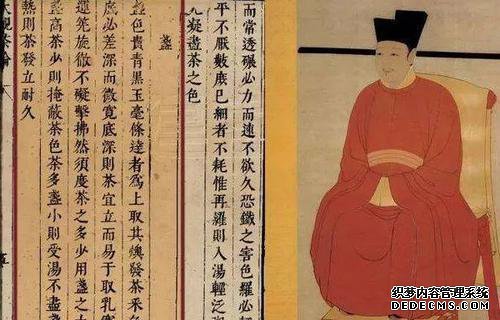 而常透碾必力而速不欲久恐鐵之害色羅必
平不厭數庶已細者不耗惟再羅則入湯輕泛
凝盡茶之色
盞
盞色貴青黑玉毫條達者爲上取其煥發茶采
底必差深而微寬底深則茶宜立而易于取乳
運筅旋徹不礙擊拂然須度茶之多少用盞之
盞高茶少則掩蔽茶色茶多盞小則受湯不盡
熱則茶發立耐久
大觀茶論
织梦内容管理系统